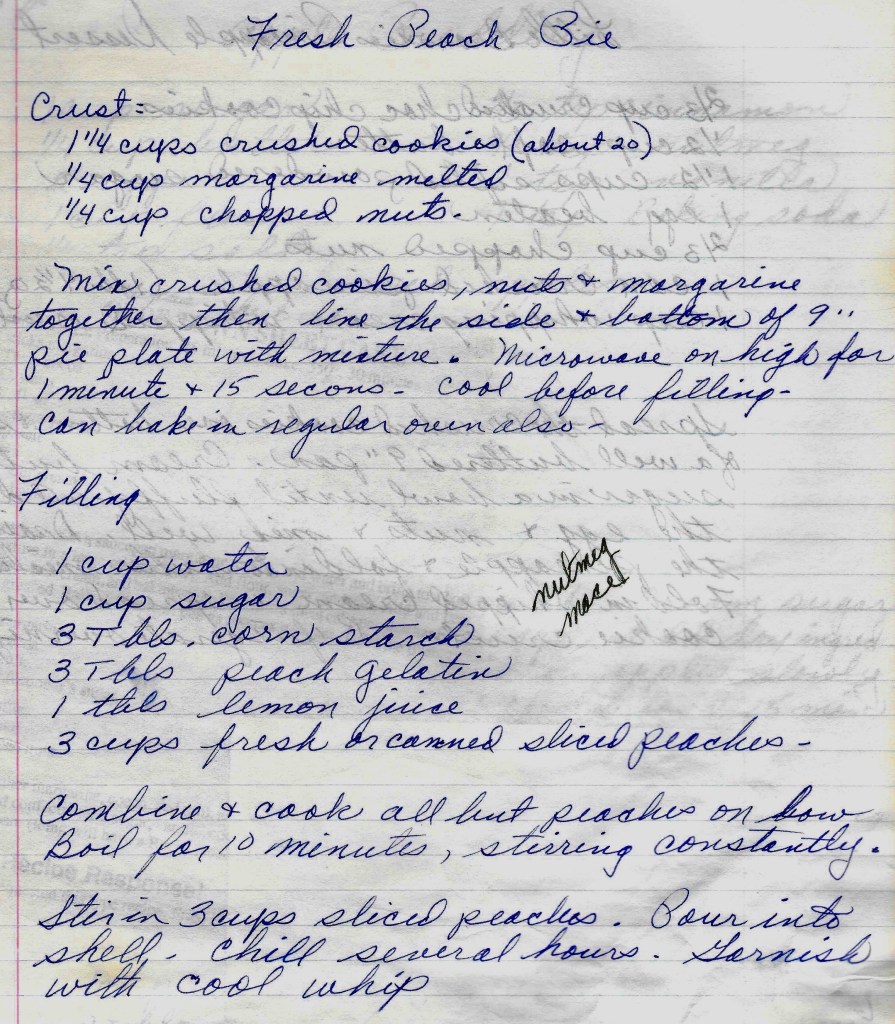 Fresh Peach Pie
Crust=
1 1/4 cups crushed cookies (about 20)
1/4 cup margarine melted
1/4 cup chopped nuts.
Mix crushed cookies, nuts + margarine
together then line the side + bottom of 9"
pie plate with mixture. Microwave on high for
1 minute + 15 secons - cool before filling -
Can bake in regular oven also -
Filling
1 cup water
1 cup sugar
nutmeg
mace
3 Tbls. corn starch
3 Tbls peach gelatin
1 tbls lemon juice
3 cups fresh or canned sliced peaches -
Combine + cook all but peaches on low
Boil for 10 minutes, stirring constantly.
Stir in 3 cups sliced peaches. Pour into
shell. Chill several hours. Garnish
with cool whip